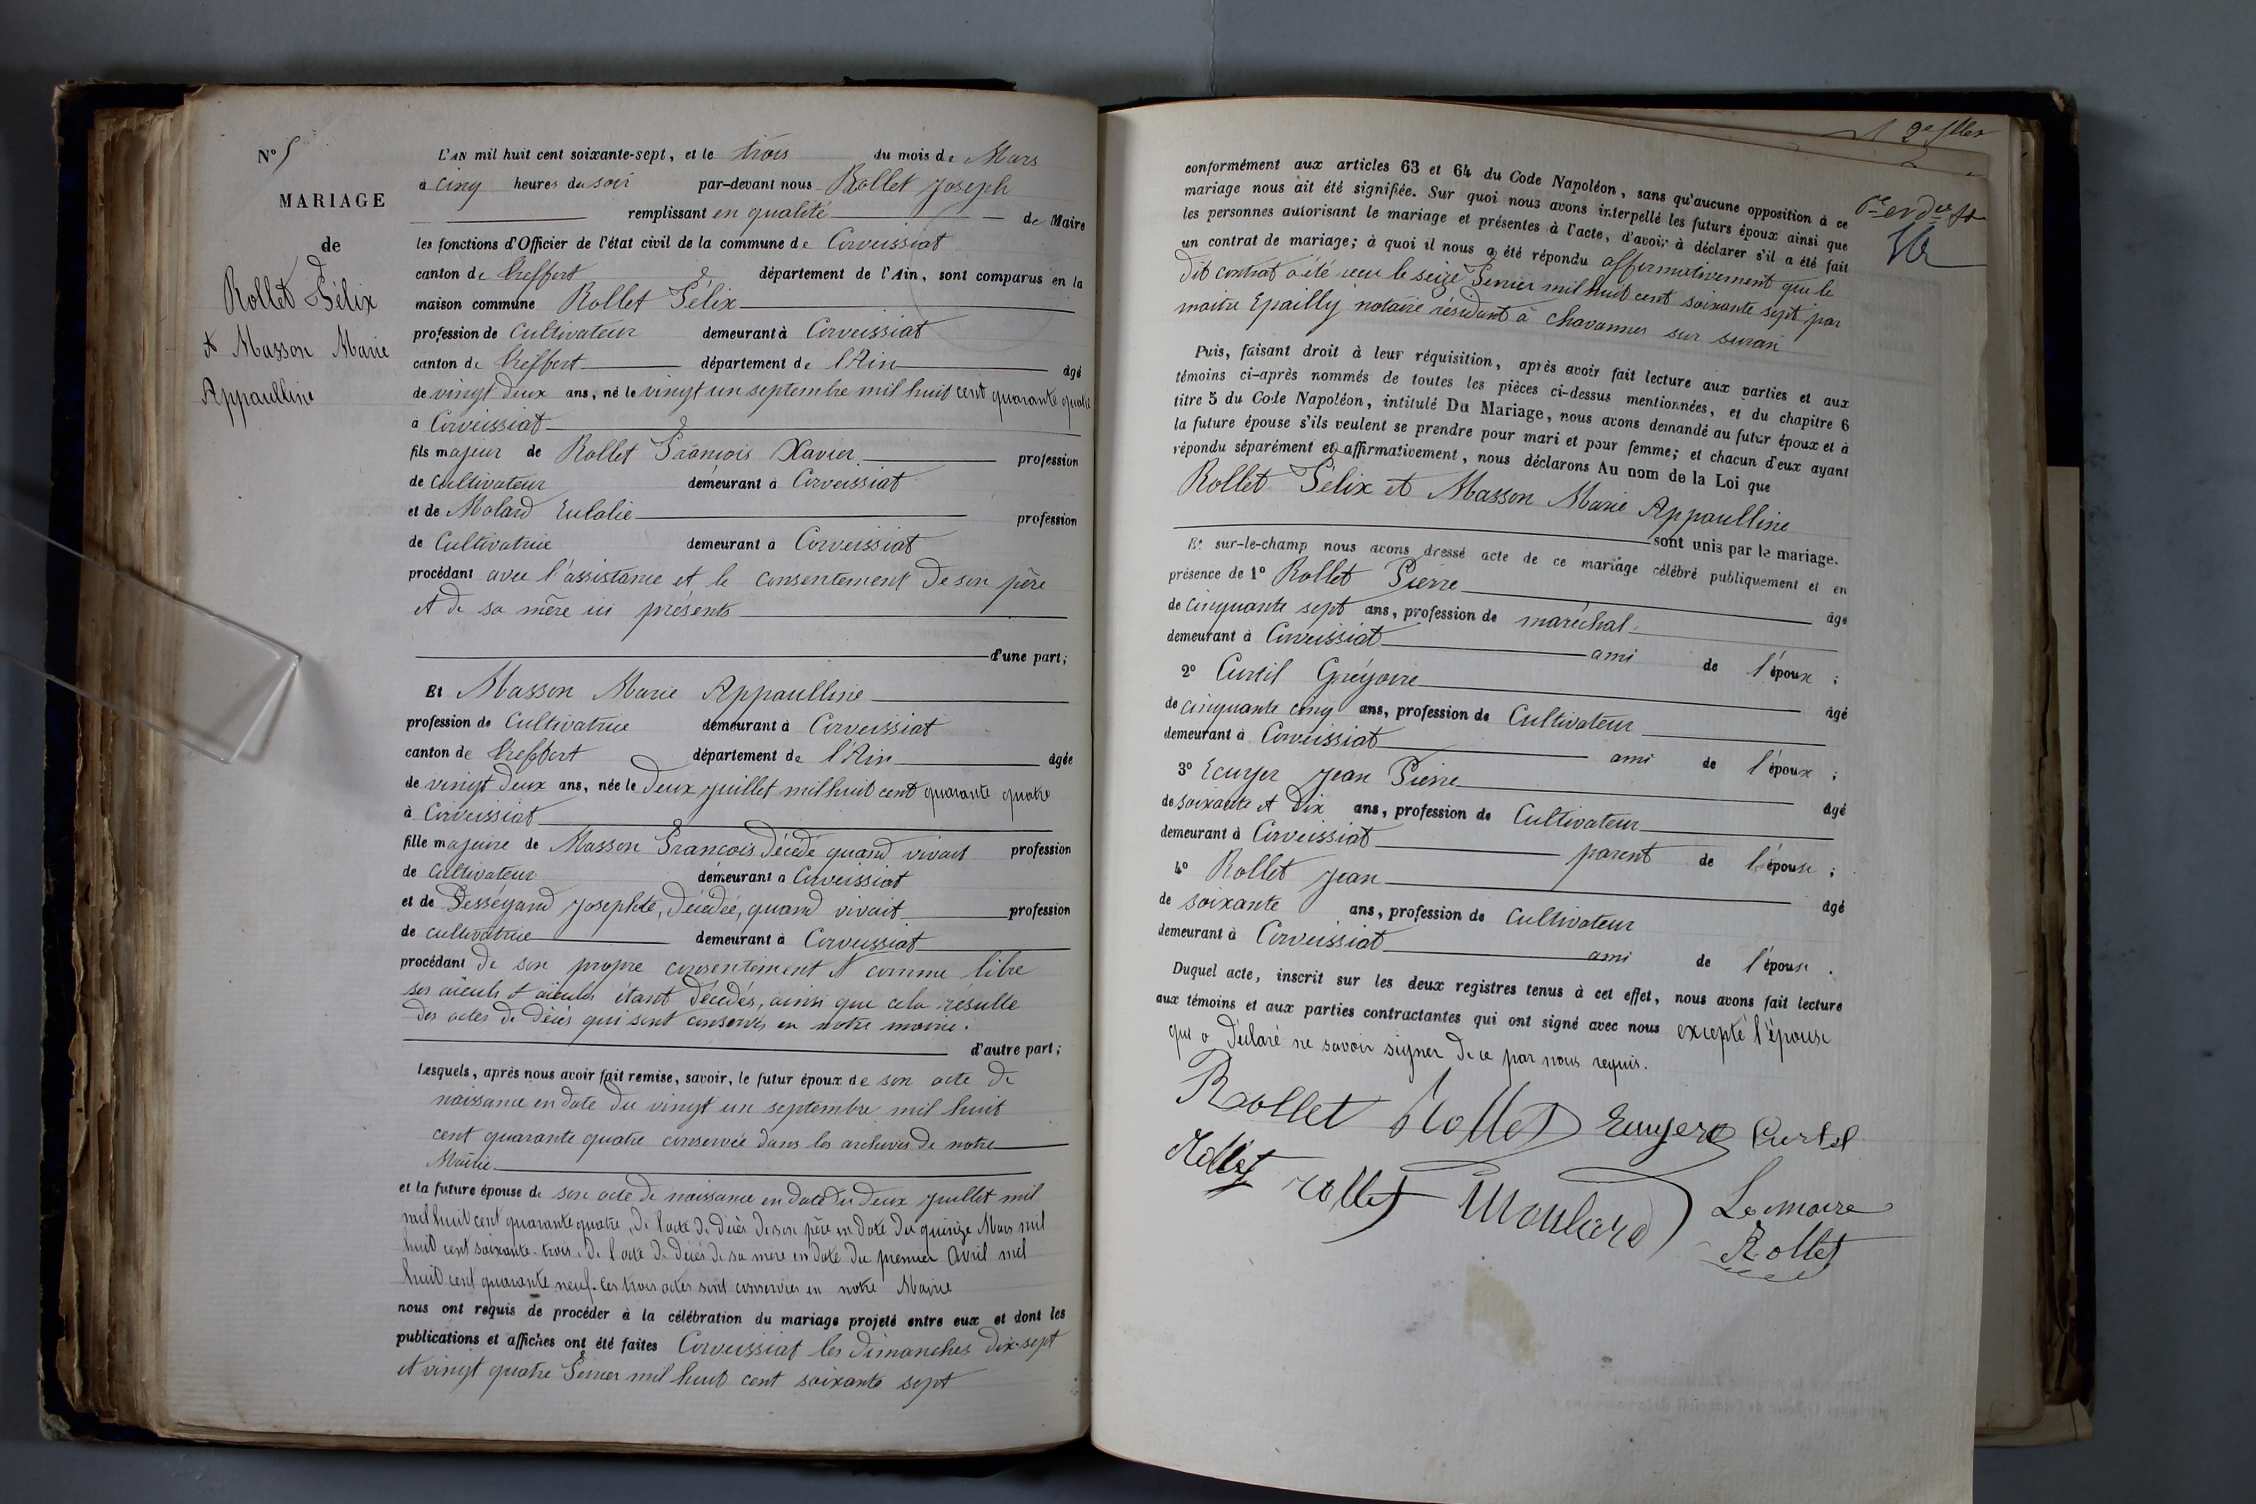 N° 5
MARIAGE
de
Rollet Félix
et Masson Marie
Appaulline
L'AN mil huit cent soixante-sept, et le trois du mois de Mars
à cinq heures du soir par-devant nous Rollet Joseph
remplissant en qualité de Maire
les fonctions d'Officier de l'état civil de la commune de Corveissiat
canton de Treffort département de l'Ain, sont comparus en la
maison commune Rollet Félix
profession de Cultivateur demeurant à Corveissiat
canton de Treffort département de l'Ain âgé
de vingt deux ans, né le vingt un septembre mil huit cent quarante quatre
à Corveissiat
fils majeur de Rollet François Xavier profession
de Cultivateur demeurant à Corveissiat
et de Molard Eulalie profession
de Cultivatrice demeurant à Corveissiat
procédant avec l'assistance et le consentement de son père
et de sa mère ici présents
d'une part;
Et Masson Marie Appaulline
profession de Cultivatrice demeurant à Corveissiat
canton de Treffort département de l'Ain âgée
de vingt deux ans, née le deux juillet mil huit cent quarante quatre
à Corveissiat
fille majeure de Masson François décédé quand vivait profession
de Cultivateur demeurant à Corveissiat
et de Josephte, décédée, quand vivait profession
de cultivatrice demeurant à Corveissiat
procédant de son propre consentement et comme libre
ses aieuls et aieules étant décédés, ainsi que cela résulte
des actes de décès qui sont conservés en notre mairie.
d'autre part;
Lesquels, après nous avoir fait remise, savoir, le futur époux de son acte de
naissance en date du vingt un septembre mil huit
cent quarante quatre conservée dans les archives de notre
Mairie
et la future épouse de son acte de naissance en date du deux juillet mil
mil huit cent quarante quatre, de l'acte de décès de son père en date du quinze Mars mil
huit cent soixante-trois, de l'acte de décès de sa mère en date du premier Avril mil
huit cent quarante neuf. Ces trois actes sont conservées en notre Mairie
nous ont requis de procéder à la célébration du mariage projeté entre eux et dont les
publications et affiches ont été faites Corveissiat les dimanches dix-sept
et vingt quatre Février mil huit cent soixante sept
2e fllet
conformément aux articles 63 et 64 du Code Napoléon, sans qu'aucune opposition à ce
mariage nous ait été signifiée. Sur quoi nous avons interpellé les futurs époux ainsi que
les personnes autorisant le mariage et présentes à l'acte, d'avoir à déclarer s'il a été fait
un contrat de mariage; à quoi il nous a été répondu affirmativement que le
dit contrat a été reçu le seize Février mil huit cent soixante sept par
maître Epailly notaire résidant à Chavannes sur suran
Puis, faisant droit à leur réquisition, après avoir fait lecture aux parties et aux
témoins ci-après nommés de toutes les pièces ci-dessus mentionnées, et du chapitre 6
titre 5 du Code Napoléon, intitulé Du Mariage, nous avons demandé au futur époux et à
la future épouse s'ils veulent se prendre pour mari et pour femme; et chacun d'eux ayant
répondu séparément et affirmativement, nous déclarons Au nom de la Loi que
Rollet Félix et Masson Marie Appaulline
sont unis par le mariage.
Et sur-le-champ nous avons dressé acte de ce mariage célébré publiquement et en
présence de 1° Rollet Pierre âgé
de cinquante sept ans, profession de maréchal
demeurant à Corveissiat ami de l'époux;
2° Curtil Grégoire âgé
de cinquante cinq ans, profession de Cultivateur
demeurant à Corveissiat ami de l'époux;
3° Ecuyer Jean Pierre âgé
de soixante et dix ans, profession de Cultivateur
demeurant à Corveissiat parent de l'épouse;
4° Rollet Jean âgé
de soixante ans, profession de Cultivateur
demeurant à Corveissiat ami de l'épouse.
Duquel acte, inscrit sur les deux registres tenus à cet effet, nous avons fait lecture
aux témoins et aux parties contractantes qui ont signé avec nous excepté l'épouse
qui a déclaré ne savoir signer de ce par nous requis.
Rollet Rollet Ecuyer Curtil
Rollet rollet Moulard Le maire
Rollet